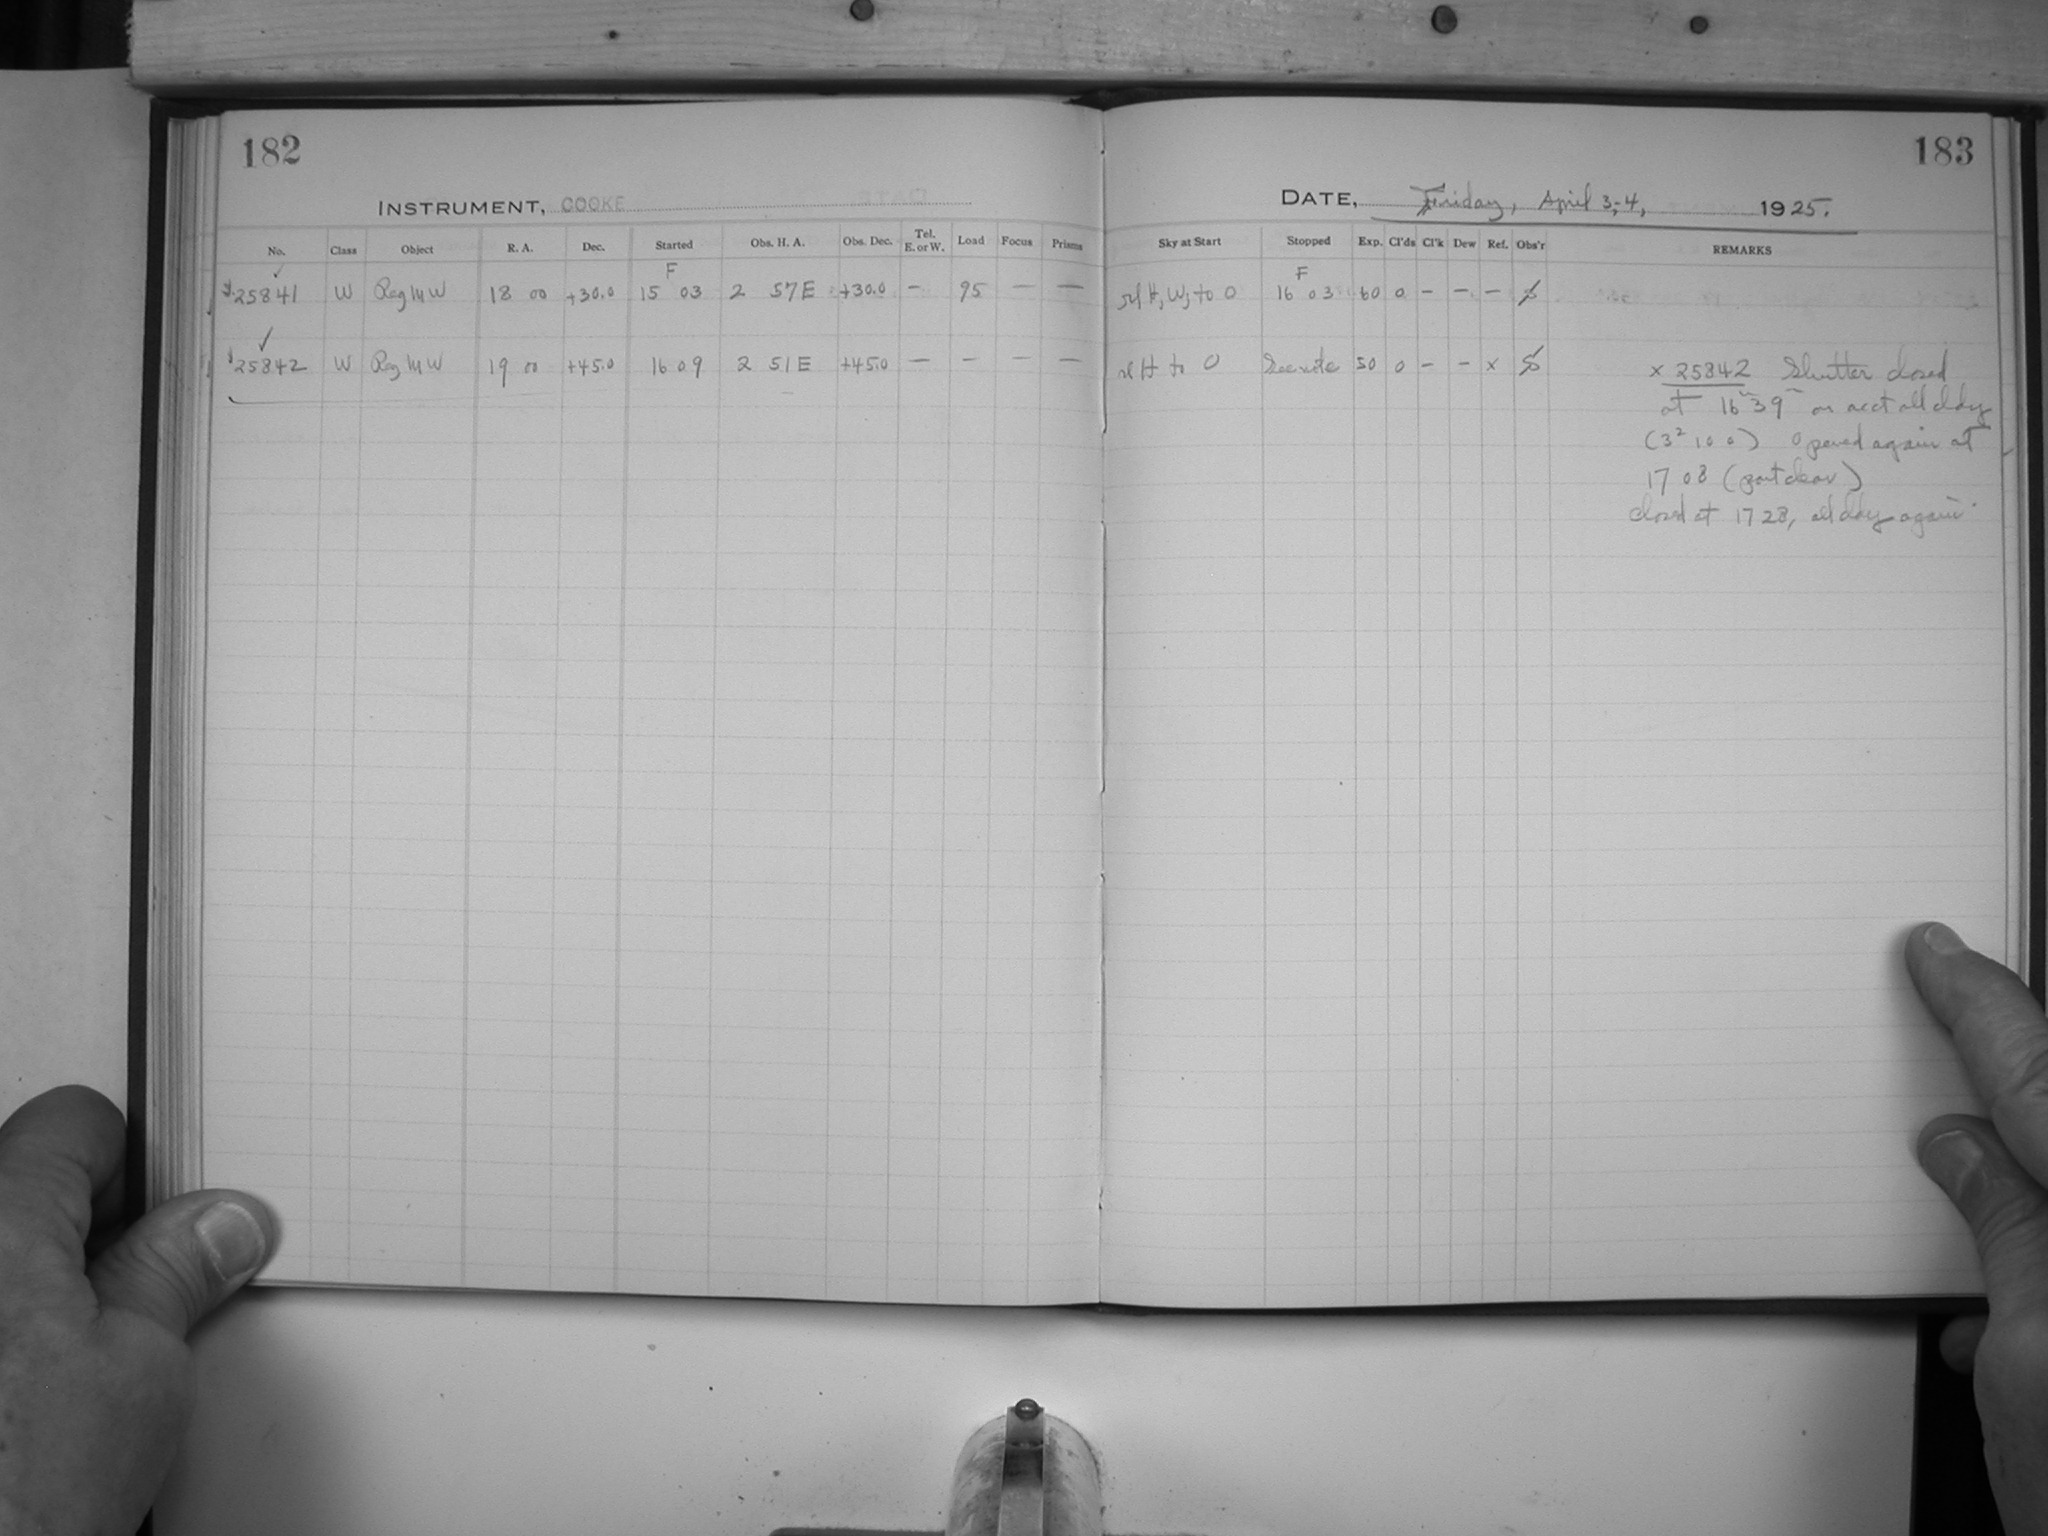 182
183
INSTRUMENT, COOKE
DATE, Friday, April 3-4, 1925.
No. Class Object R. A. Dec. Started Obs. H. A. Obs. Dec. Tel. E. or W. Load Focus Prisms Sky at Start Stopped Exp. Cl'ds Cl'k Dew Ref. Obs'r REMARKS
F F
25841 W Reg M W 18 00 +30.0 15 03 2 57 E +30.0 — 95 — — H, W, to 0 16 03 60 0 — — —
25842 W Reg M W 19 00 +45.0 16 09 2 51 E +45.0 — — — — H to 0 See note 50 0 — — x
x 25842 Shutter closed
at 16 39 on acct all cldy
(3² 10 0) opened again at
17 08 (part clear)
closed at 17 28, all cldy again